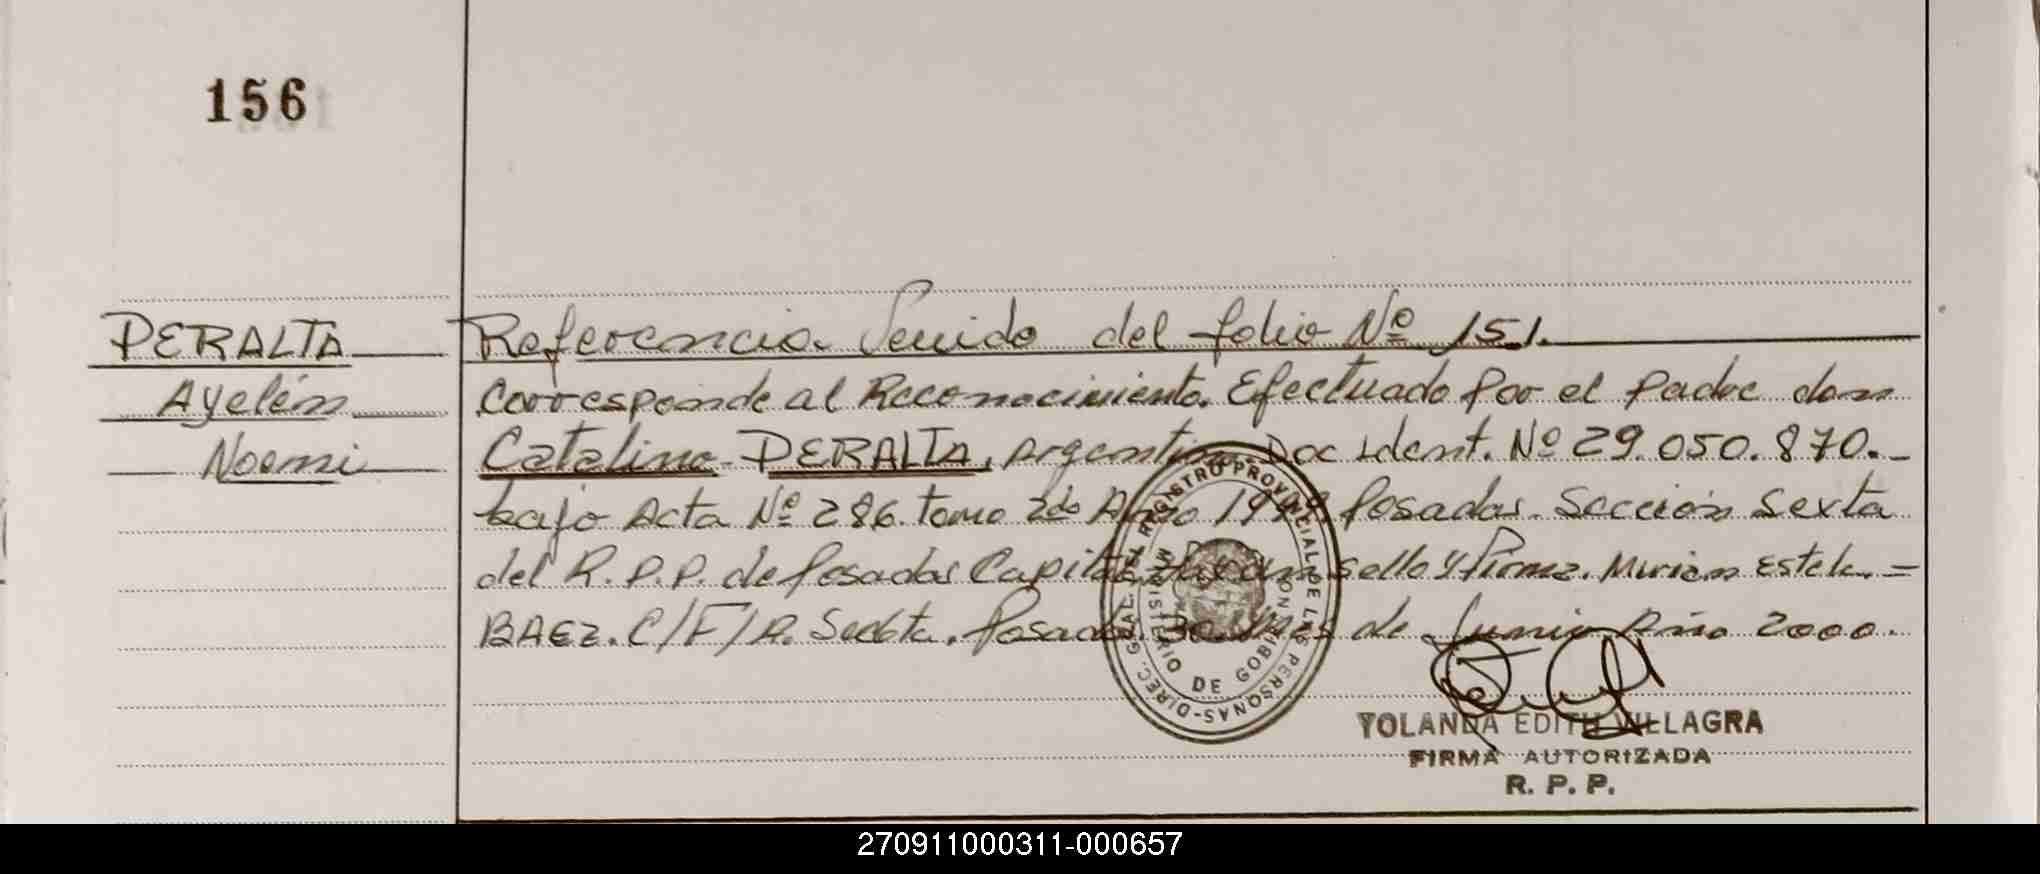 156
PERALTA
Ayelén
Noemi
Referencia Venida del folio Nº 151.
Corresponde al Reconocimiento. Efectuado por el padre don
Catalino PERALTA, Argentino Doc Ident. Nº 29.050.870.-
bajo Acta Nº 286. tomo 2do Año Posadas. Sección Sexta
del R.P.P. de Posadas Capital sello y firma. Miriam Estela.=
BAEZ. C/F/R. Sexta. Posadas. de Junio Año 2000.
REGISTRO PROVINCIAL DE LAS PERSONAS-DIREC. GRAL.
MINISTERIO DE GOBIERNO
YOLANDA EDITH VILLAGRA
FIRMA AUTORIZADA
R. P. P.
270911000311-000657